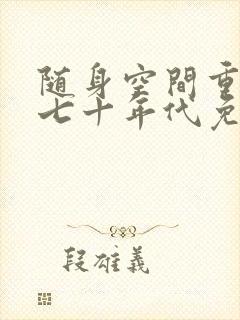 随身空間重
七十年代免
段雄義